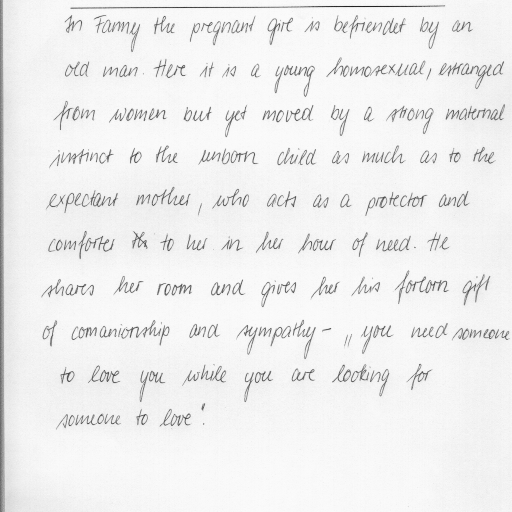 In Fanny the pregnant girl is befriendet by an
old man. Here it is a young homosexual, estranged
from women but yet moved by a strong maternal
instinct to the unborn child as much as to the
expectant mother, who acts as a protector and
comforter to her in her hour of need. He
shares her room and gives her his forlorn gift
of comanionship and sympathy - "you need someone
to love you while you are looking for
someone to love".